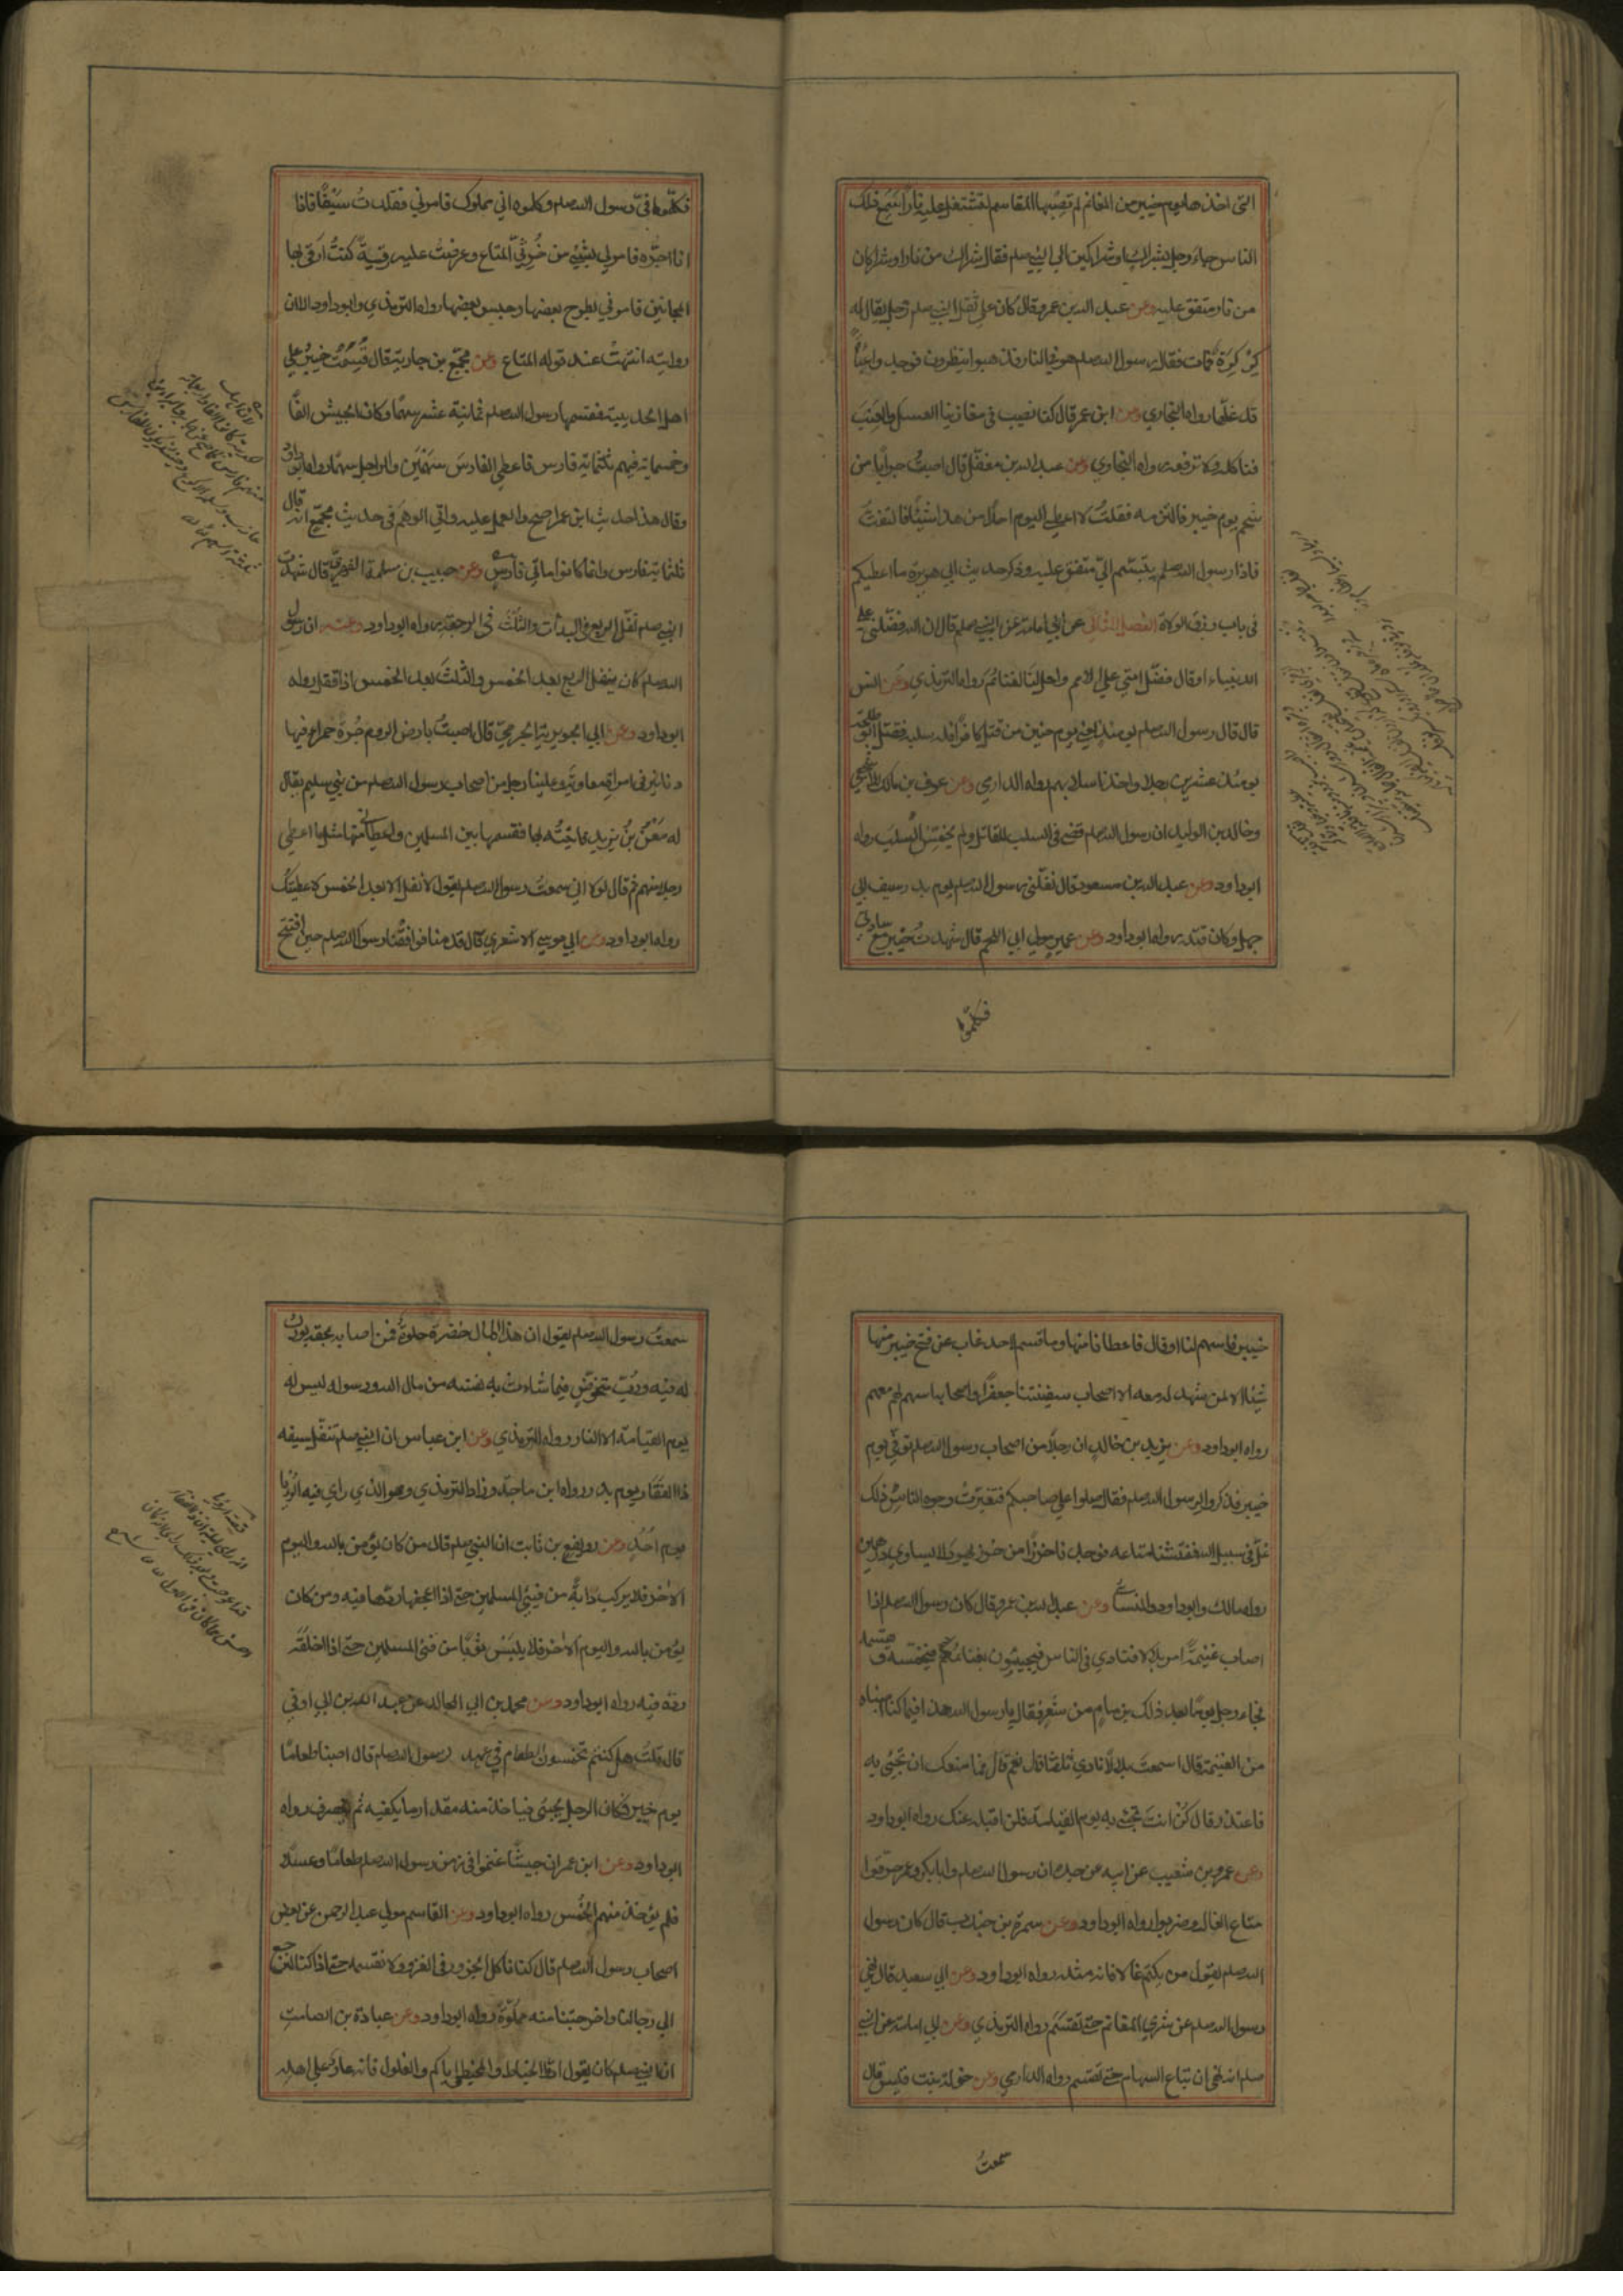 التى اخذها يوم خيبر من المغانم لم تصبها المقاسم لتشتعل عليه نارا فلما سمع ذلك
الناس جاء رجل بشراك او شراكين الى النبي صلم فقال شراك من نار او شراكان
من نار متفق عليه وعن عبد الله بن عمرو قال كان على ثقل النبي صلم رجل يقال له
كركرة فمات فقال رسول الله صلم هو في النار فذهبوا ينظرون فوجدوا عباءً
قد غلّها رواه البخاري وعن ابن عمر قال كنا نصيب في مغازينا العسل والعنب
فناكله ولا نرفعه رواه البخاري وعن عبد الله بن مغفل قال اصبت جرابا من
شحم يوم خيبر فالتزمته فقلت لا اعطي اليوم احدا من هذا شيئا فالتفت
فاذا رسول الله صلم يتبسم اليّ متفق عليه وذكر حديث ابي هريرة ما اعطيكم
في باب رزق الولاة الفصل الثاني عن ابي امامة عن النبي صلم قال ان الله فضلني على
الانبياء او قال فضّل امتي على الامم واحل لنا الغنائم رواه الترمذي وعن انس
قال قال رسول الله صلم يومئذ يعني يوم حنين من قتل كافرا فله سلبه فقتل ابو طلحة
يومئذ عشرين رجلا واخذ اسلابهم رواه الدارمي وعن عوف بن مالك الاشجعي
وخالد بن الوليد ان رسول الله صلم قضى في السلب للقاتل ولم يخمّس السلب رواه
ابو داود وعن عبد الله بن مسعود قال نفّلني رسول الله صلم يوم بدر سيف ابي
جهل وكان قتله رواه ابو داود وعن عمير مولى ابي اللحم قال شهدت خيبر مع سادتي
فكلموا
فكلّموا فيّ رسول الله صلم وكلموه اني مملوك فامرني فقلدت سيفًا فاذا
انا اجرّه فامر لي بشيء من خرثي المتاع وعرضت عليه رقية كنت ارقي بها
المجانين فامرني بطرح بعضها وحبس بعضها رواه الترمذي وابو داود الا ان
روايته انتهت عند قوله المتاع وعن مجمّع بن جارية قال قسمت خيبر على
اهل الحديبية فقسمها رسول الله صلم ثمانية عشر سهمًا وكان الجيش الفًا
وخمسماية فيهم ثلثماية فارس فاعطى الفارس سهمين والراجل سهمًا رواه ابو داود
وقال هذا حديث ابن عمر اصح والعمل عليه واتى الوهم في حديث مجمّع انه قال
ثلثماية فارس وانما كانوا مائتي فارس وعن حبيب بن مسلمة الفهري قال شهدت
النبي صلم نفّل الربع في البدأة والثلث في الرجعة رواه ابو داود وعنه ان رسول
الله صلم كان ينفل الربع بعد الخمس والثلث بعد الخمس اذا قفل رواه
ابو داود وعن ابي الجويرية الجرمي قال اصبت بارض الروم جرة حمراء فيها
دنانير في امرة معاوية وعلينا رجل من اصحاب رسول الله صلم من بني سليم يقال
له معن بن يزيد فاتيته بها فقسمها بين المسلمين واعطاني منها مثل ما اعطى
رجلا منهم ثم قال لولا اني سمعت رسول الله صلم يقول لا نفل الا بعد الخمس لاعطيتك
رواه ابو داود وعن ابي موسى الاشعري قال قدمنا فوافقنا رسول الله صلم حين افتتح
خيبر فاسهم لنا او قال فاعطانا منها وما قسم لاحد غاب عن فتح خيبر منها
شيئا الا لمن شهد معه الا اصحاب سفينتنا جعفرًا واصحابه اسهم لهم معهم
رواه ابو داود وعن يزيد بن خالد ان رجلًا من اصحاب رسول الله صلم توفي يوم
خيبر فذكروا لرسول الله صلم فقال صلوا على صاحبكم فتغيرت وجوه الناس لذلك
غلّ في سبيل الله ففتشنا متاعه فوجدنا خرزًا من خرز يهود لا يساوي درهمين
رواه مالك وابو داود والنسائي وعن عبد الله بن عمرو قال كان رسول الله صلم اذا
اصاب غنيمةً امر بلالا فنادى في الناس فيجيئون بغنائمهم فيخمسه ويقسمه
فجاء رجل يومًا بعد ذلك بزمام من شعر فقال يا رسول الله هذا فيما كنا اصبناه
من الغنيمة قال اسمعت بلالًا نادى ثلثا قال نعم قال فما منعك ان تجيء به
فاعتذر قال كن انت تجيء به يوم القيامة فلن اقبله عنك رواه ابو داود
وعن عمرو بن شعيب عن ابيه عن جده ان رسول الله صلم وابا بكر وعمر حرّقوا
متاع الغال وضربوه رواه ابو داود وعن سمرة بن جندب قال كان رسول
الله صلم يقول من يكتم غالا فانه مثله رواه ابو داود وعن ابي سعيد قال نهى
رسول الله صلم عن شرى المغانم حتى تقسم رواه الترمذي وعن ابي امامة عن النبي
صلم انه نهى ان تباع السهام حتى تقسم رواه الدارمي وعن خولة بنت قيس قال
سمعت
سمعت رسول الله صلم يقول ان هذا المال خضرة حلوة فمن اصابه بحقه بورك
له فيه ورب متخوض فيما شاءت به نفسه من مال الله ورسوله ليس له
يوم القيامة الا النار رواه الترمذي وعن ابن عباس ان النبي صلم تنفّل سيفه
ذا الفقار يوم بدر رواه ابن ماجة وزاد الترمذي وهو الذي راى فيه الرؤيا
يوم احد وعن رويفع بن ثابت ان النبي صلم قال من كان يؤمن بالله واليوم
الاخر فلا يركب دابة من فيء المسلمين حتى اذا اعجفها ردها فيه ومن كان
يؤمن بالله واليوم الاخر فلا يلبس ثوبًا من فيء المسلمين حتى اذا اخلقه
رده فيه رواه ابو داود وعن محمد بن ابي المجالد عن عبد الله بن ابي اوفى
قال قلت هل كنتم تخمسون الطعام في عهد رسول الله صلم قال اصبنا طعامًا
يوم خيبر فكان الرجل يجيء فياخذ منه مقدار ما يكفيه ثم ينصرف رواه
ابو داود وعن ابن عمر ان جيشًا غنموا في زمن رسول الله صلم طعامًا وعسلًا
فلم يؤخذ منهم الخمس رواه ابو داود وعن القاسم مولى عبد الرحمن عن بعض
اصحاب رسول الله صلم قال كنا ناكل الجزور في الغزو ولا نقسمه حتى اذا كنا لنرجع
الى رحالنا واخرجتنا منه مملوّة رواه ابو داود وعن عبادة بن الصامت
ان النبي صلم كان يقول ادّوا الخياط والمخيط واياكم والغلول فانه عار على اهله